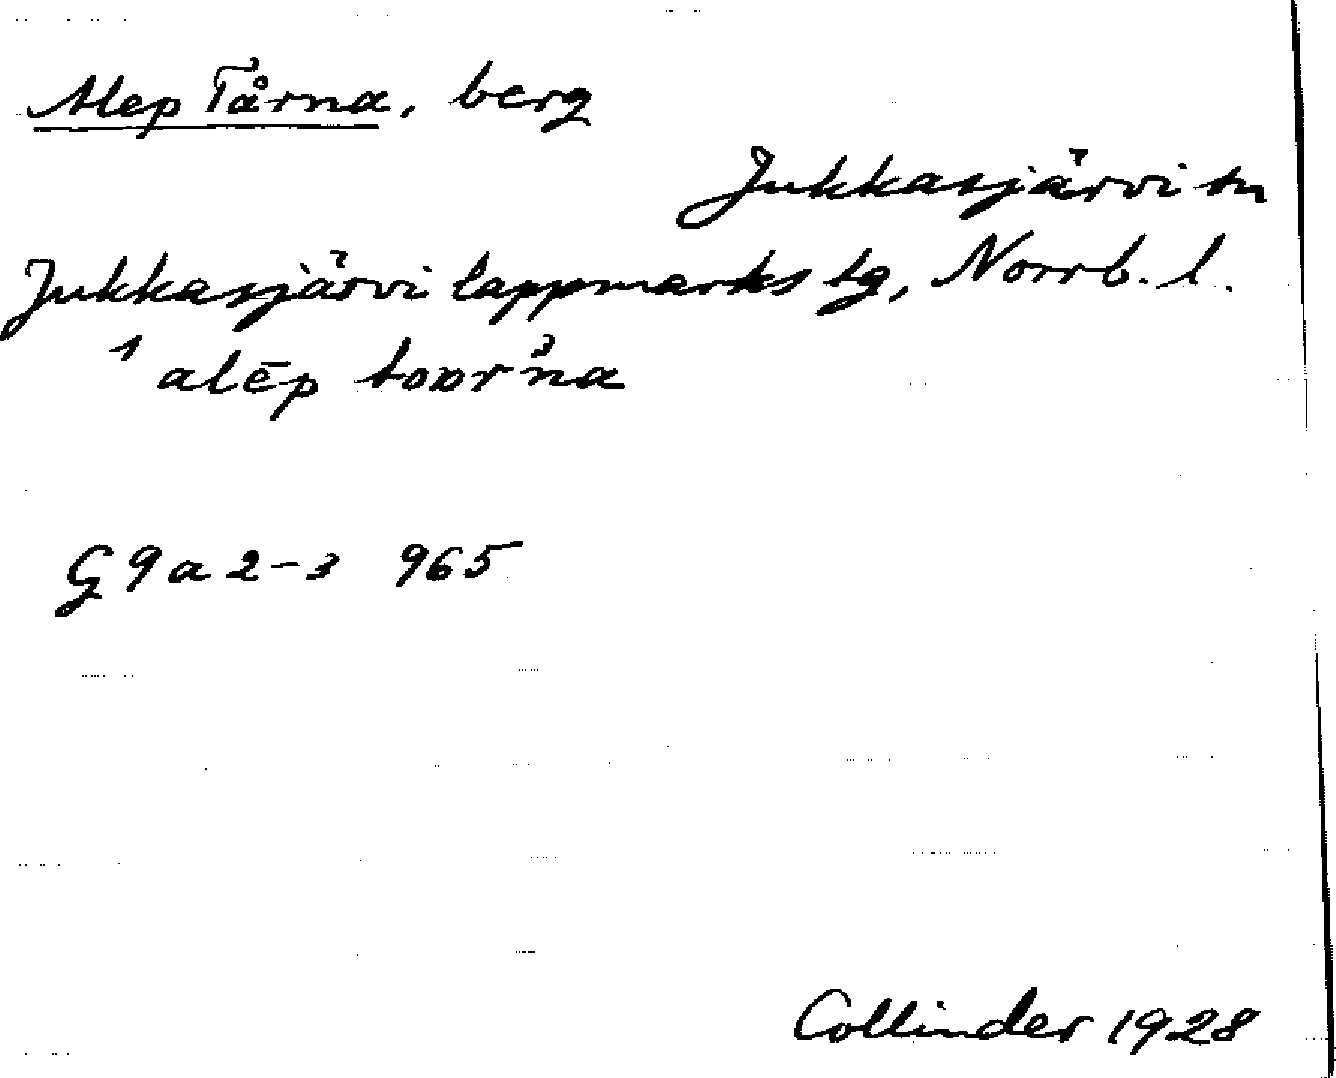 Alep Tårna, berg
Jukkasjärvi sn
Jukkasjärvi lappmarks tg, Norrb. l.
1 alēp
G 9 a 2-3 965
Collinder 1928